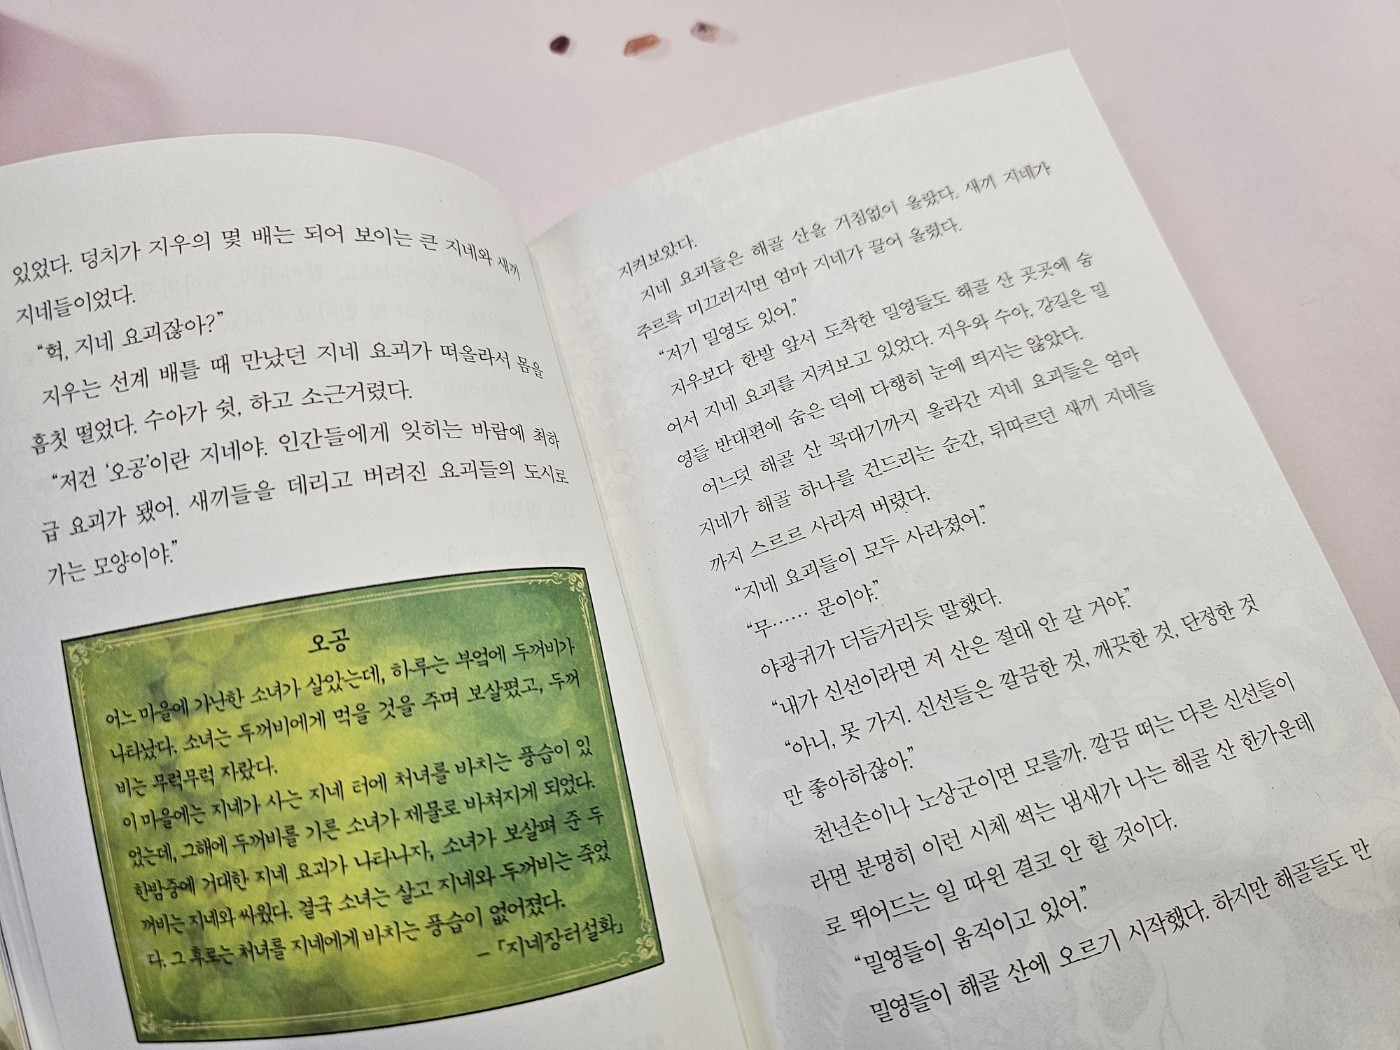 있었다. 덩치가 지우의 몇 배는 되어 보이는 큰 지네와 새끼
지네들이었다.
“헉, 지네 요괴잖아?”
지우는 선계 배틀 때 만났던 지네 요괴가 떠올라서 몸을
흠칫 떨었다. 수아가 쉿, 하고 소근거렸다.
“저건 ‘오공’이란 지네야. 인간들에게 잊히는 바람에 최하
급 요괴가 됐어. 새끼들을 데리고 버려진 요괴들의 도시로
가는 모양이야.”
오공
어느 마을에 가난한 소녀가 살았는데, 하루는 부엌에 두꺼비가
나타났다. 소녀는 두꺼비에게 먹을 것을 주며 보살폈고, 두꺼
비는 무럭무럭 자랐다.
이 마을에는 지네가 사는 지네 터에 처녀를 바치는 풍습이 있
었는데, 그해에 두꺼비를 기른 소녀가 제물로 바쳐지게 되었다.
한밤중에 거대한 지네 요괴가 나타나자, 소녀가 보살펴 준 두
꺼비는 지네와 싸웠다. 결국 소녀는 살고 지네와 두꺼비는 죽었
다. 그 후로는 처녀를 지네에게 바치는 풍습이 없어졌다.
–「지네장터설화」
지켜보았다.
지네 요괴들은 해골 산을 거침없이 올랐다. 새끼 지네가
주르륵 미끄러지면 엄마 지네가 끌어 올렸다.
“저기 밀영도 있어.”
지우보다 한발 앞서 도착한 밀영들도 해골 산 곳곳에 숨
어서 지네 요괴를 지켜보고 있었다. 지우와 수아, 강길은 밀
영들 반대편에 숨은 덕에 다행히 눈에 띄지는 않았다.
어느덧 해골 산 꼭대기까지 올라간 지네 요괴들은 엄마
지네가 해골 하나를 건드리는 순간, 뒤따르던 새끼 지네들
까지 스르르 사라져 버렸다.
“지네 요괴들이 모두 사라졌어.”
“무…… 문이야.”
야광귀가 더듬거리듯 말했다.
“내가 신선이라면 저 산은 절대 안 갈 거야.”
“아니, 못 가지. 신선들은 깔끔한 것, 깨끗한 것, 단정한 것
만 좋아하잖아.”
천년손이나 노상군이면 모를까. 깔끔 떠는 다른 신선들이
라면 분명히 이런 시체 썩는 냄새가 나는 해골 산 한가운데
로 뛰어드는 일 따윈 결코 안 할 것이다.
“밀영들이 움직이고 있어.”
밀영들이 해골 산에 오르기 시작했다. 하지만 해골들도 만